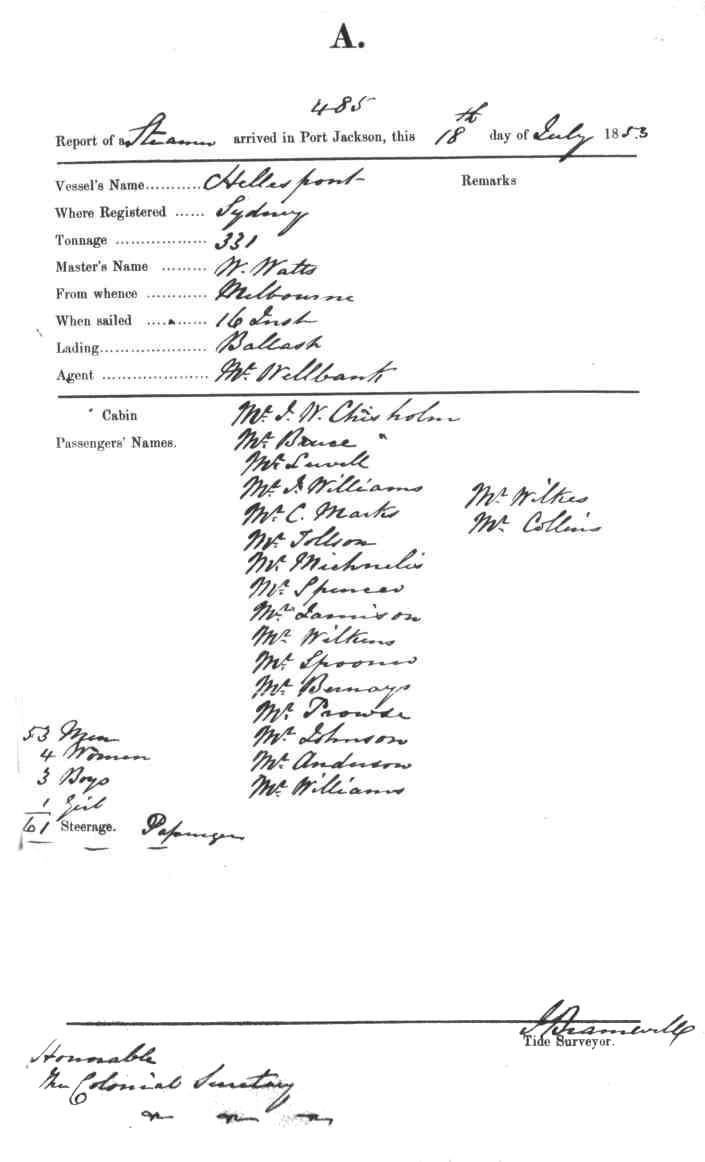 A.
485
Report of a Steamer arrived in Port Jackson, this 18th day of July 1853
Vessel's Name........... Hellespont Remarks
Where Registered ...... Sydney
Tonnage ................... 331
Master's Name ......... W. Watts
From whence ............ Melbourne
When sailed ............ 16 Inst
Lading...................... Ballast
Agent ...................... Mr. Wellbank
Cabin Mr. J. W. Chisholm
Passengers' Names. Mr. Bruce "
Mr. Lewell
Mr. J. Williams Mr. Wilkes
Mr. C. Marks Mr. Collins
Mr. Tollson
Mr. Michnelis
Mr. Spencer
Mr. Jamison
Mr. Wilkins
Mr. Spooner
Mr. Bernays
Mr. Prowse
53 Men Mr. Johnson
4 Women Mr. Anderson
3 Boys Mr. Williams
1 Girl
61 Steerage. Passengers
J Bramwell
Tide Surveyor.
Honorable
The Colonial Secretary